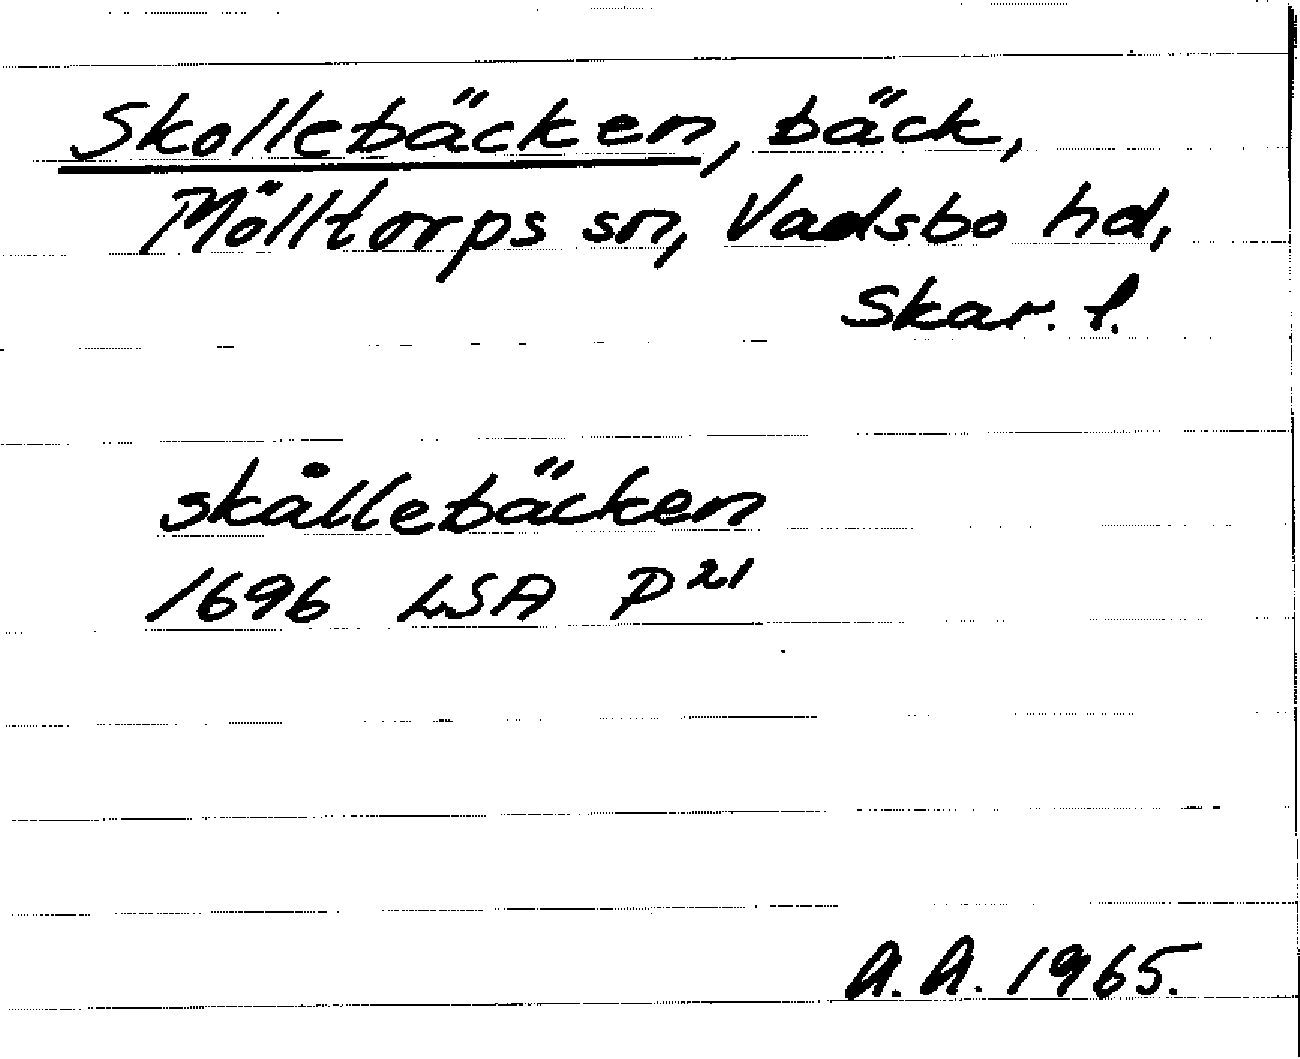 Skollebäcken, bäck,
Mölltorps sn, Vadsbo hd,
Skar. l.
skållebäcken
1696 LSA P²¹
A.A. 1965.